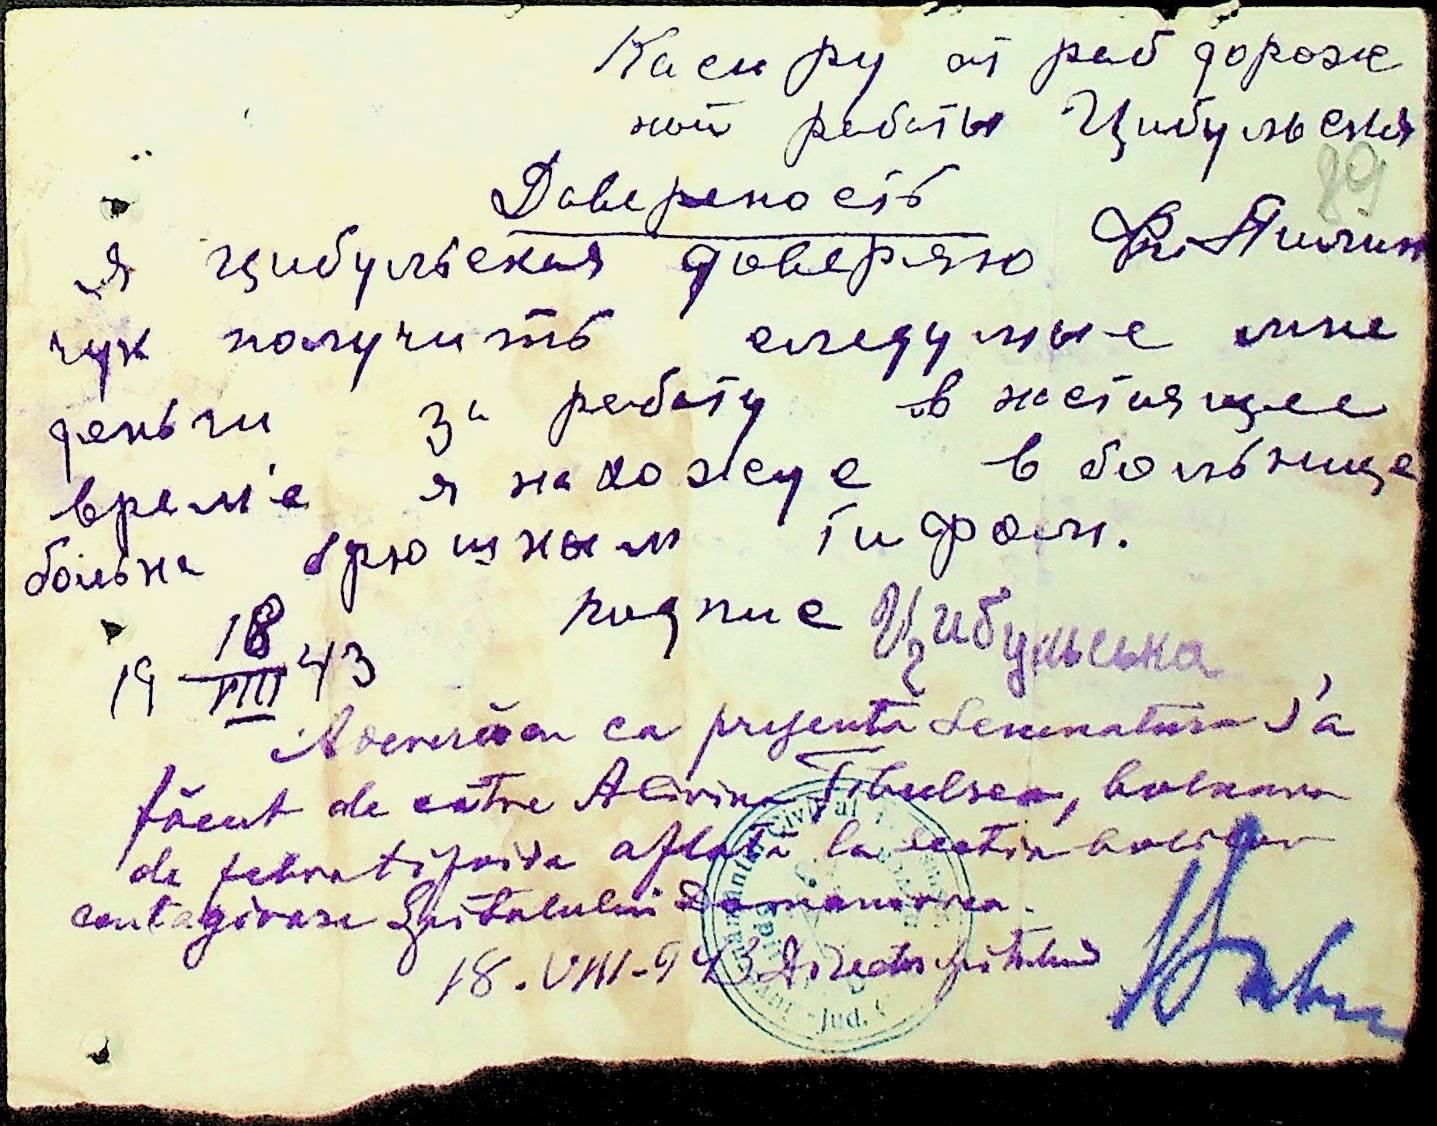 Касиру от раб дорож
ной работы Цибульская
89
Давереность
я цибульская доверяю Пилип
чук получить следумые мне
деньги за работу в настоящее
время я нахожус в больнице
больна брюшным тифом.
подпис Цибульська
19 18/VIII 43
Adeverăm ca prezenta semnatura s'a
făcut de către Tibulsca, bolnava
de febra tifoida aflată la sectia bolilor
contagioase Spitalului Domaniovca.
18.VIII-943 Director spitalului
Jud.